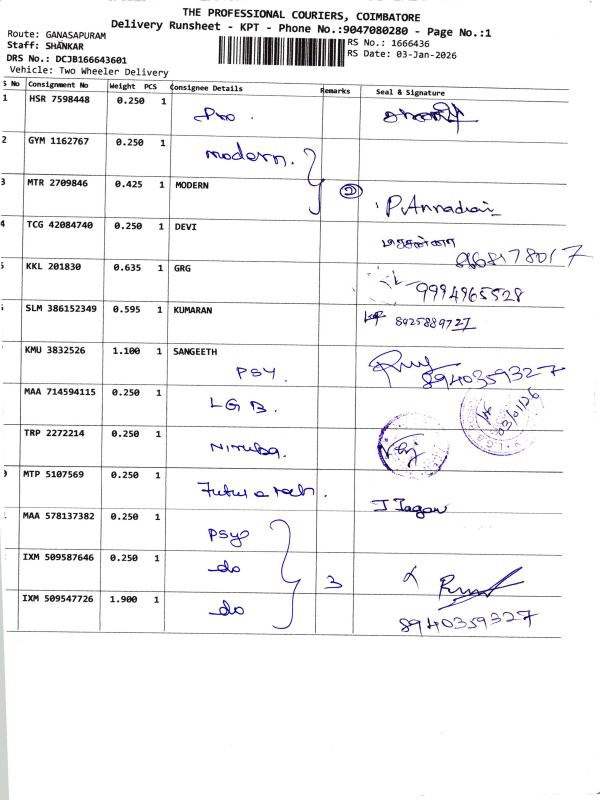 THE PROFESSIONAL COURIERS, COIMBATORE
Delivery Runsheet - KPT - Phone No.:9047080280 - Page No.:1
Route: GANASAPURAM
Staff: SHANKAR
RS No.: 1666436
DRS No.: DCJB166643601
RS Date: 03-Jan-2026
Vehicle: Two Wheeler Delivery
S No Consignment No Weight PCS Consignee Details Remarks Seal & Signature
1 HSR 7598448 0.250 1 Pro.
2 GYM 1162767 0.250 1 modern.
3 MTR 2709846 0.425 1 MODERN 2 P. Annadurai
4 TCG 42084740 0.250 1 DEVI
968178017
5 KKL 201830 0.635 1 GRG 9994965528
SLM 386152349 0.595 1 KUMARAN 8925889727
KMU 3832526 1.100 1 SANGEETH
PSY. 8940359327
MAA 714594115 0.250 1 LGB. 03/01/26
TRP 2272214 0.250 1 Niruba.
MTP 5107569 0.250 1 J Jagan
MAA 578137382 0.250 1 PSY
IXM 509587646 0.250 1 do 3
IXM 509547726 1.900 1 do
8940359327